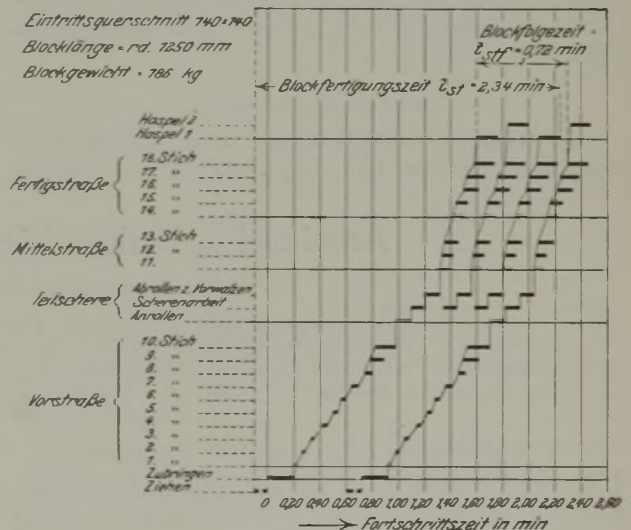 Eintrittsquerschnitt 140×140
Blocklänge = rd. 1250 mm
Blockgewicht = 186 kg
Blockfolgezeit =
tstf = 0,72 min
Blockfertigungszeit tst = 2,34 min
Haspel 2
Haspel 1
Fertigstraße
18. Stich
17. "
16. "
15. "
14. "
Mittelstraße
13. Stich
12. "
11. "
Teilschere
Abrollen z. Vorwalzen
Scherenarbeit
Anrollen
Vorstraße
10. Stich
9. "
8. "
7. "
6. "
5. "
4. "
3. "
2. "
1. "
Zubringen
Ziehen
0 0,20 0,40 0,60 0,80 1,00 1,20 1,40 1,60 1,80 2,00 2,20 2,40 2,60
Fortschrittszeit in min